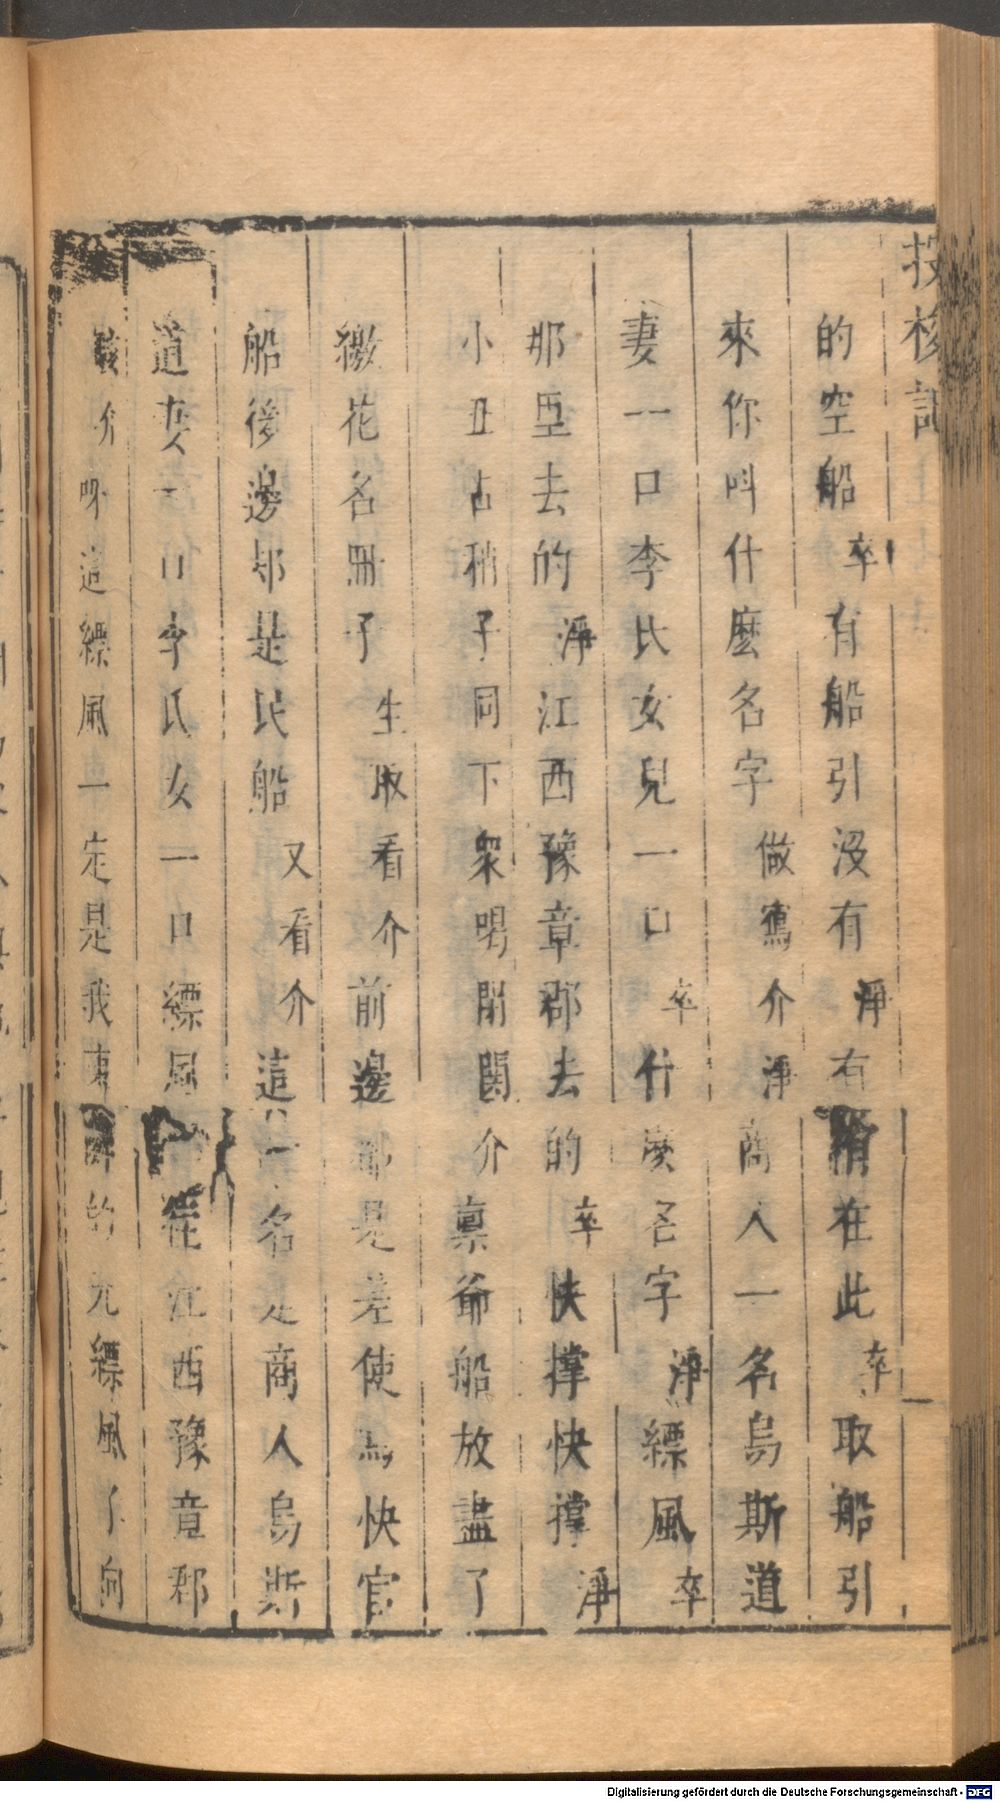 投梭記
的空船卒有船引沒有淨有稍在此卒取船引
來你叫什麼名字做寫介淨商人一名烏斯道
妻一口李氏女兒一口卒什麼名字淨縹風卒
那里去的淨江西豫章郡去的卒快撑快撑淨
小丑占稍子同下衆喝開關介稟爺船放盡了
繳花名冊子生取看介前邊都是差使馬快官
船後邊却是民船又看介這一名是商人烏斯
道妻一口李氏女一口縹風往江西豫章郡
介呀這縹風一定是我東的元縹風了向
Digitalisierung gefördert durch die Deutsche Forschungsgemeinschaft - DFG